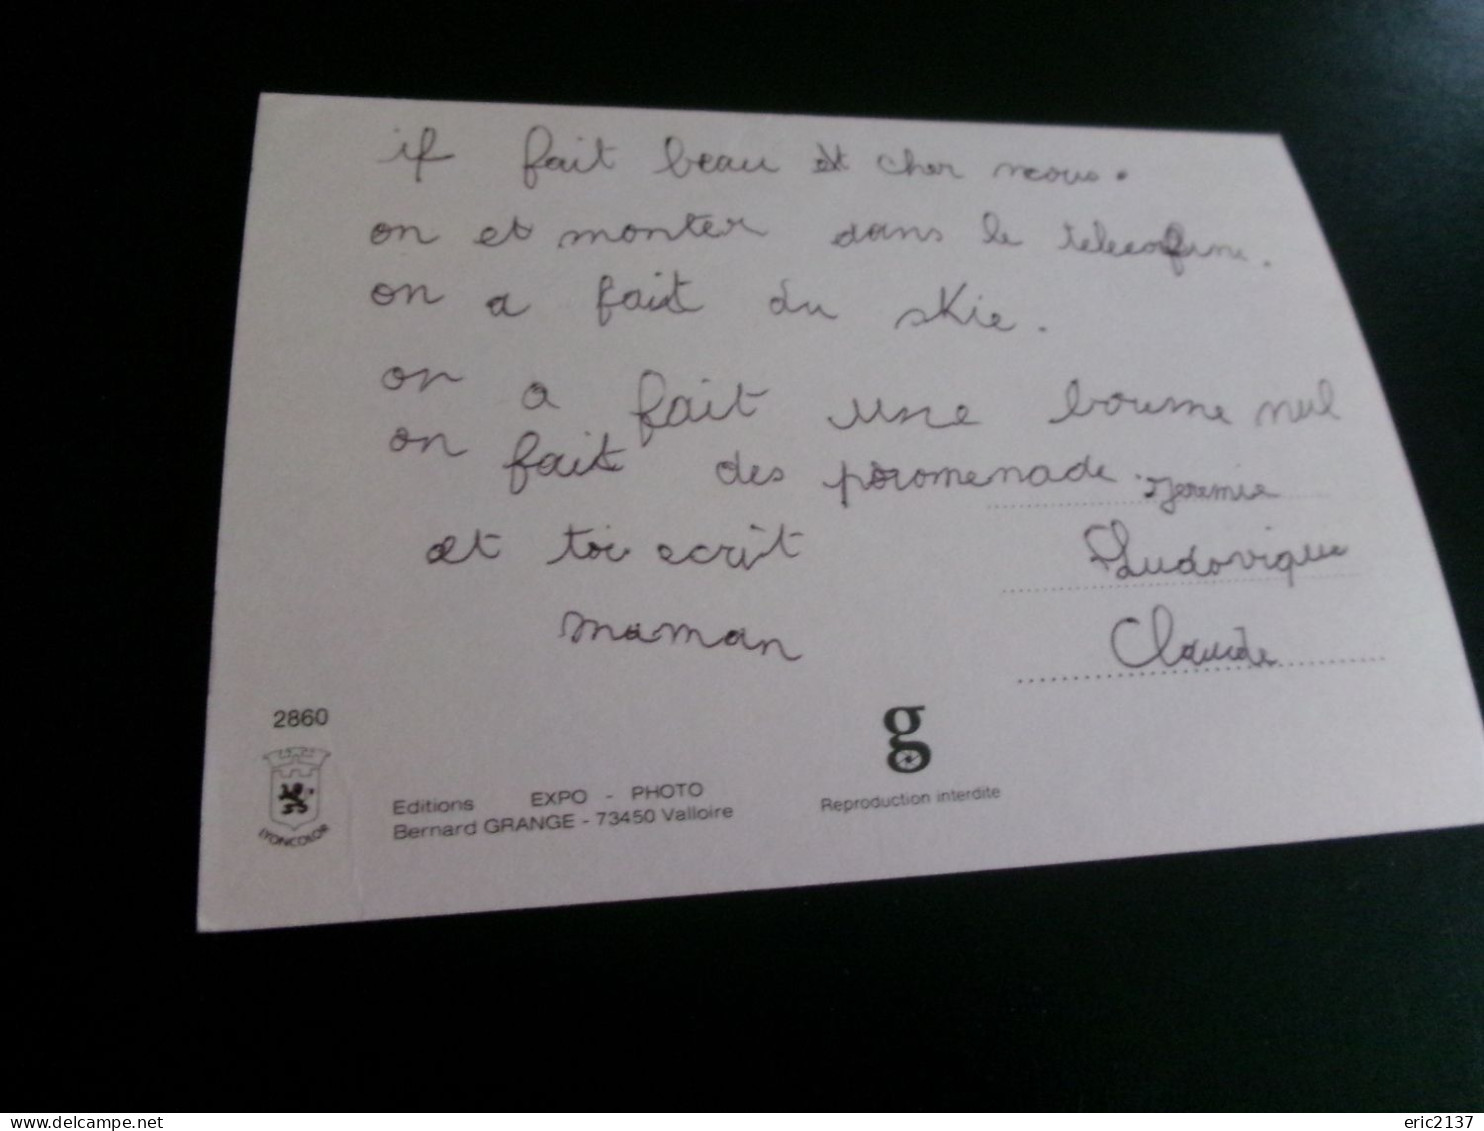 il fait beau et cher nous.
on et monter dans le
on a fait du skie.
on a fait une boume nul
on fait des promenade. Jeremie
et toi ecrit Ludovique
maman Claude
2860
LYONCOLOR
Editions EXPO - PHOTO
Bernard GRANGE - 73450 Valloire
g
Reproduction interdite
delcampe.net
eric2137